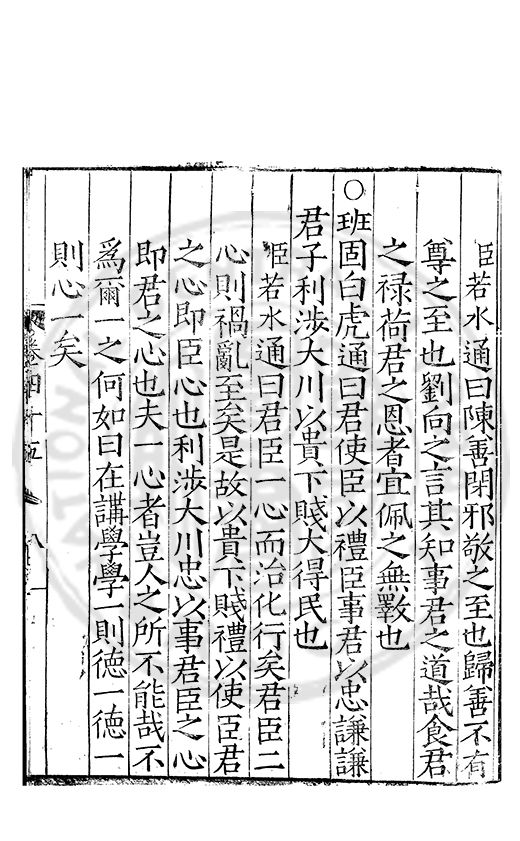 臣若水通曰陳善閉邪敬之至也歸善不有
尊之至也劉向之言其知事君之道哉食君
之禄荷君之恩者宜佩之無斁也
○班固白虎通曰君使臣以禮臣事君以忠謙謙
君子利涉大川以貴下賤大得民也
臣若水通曰君臣一心而治化行矣君臣二
心則禍亂至矣是故以貴下賤禮以使臣君
之心即臣心也利涉大川忠以事君臣之心
即君之心也夫一心者豈人之所不能哉不
爲爾一之何如曰在講學學一則徳一徳一
則心一矣
卷四十五
八